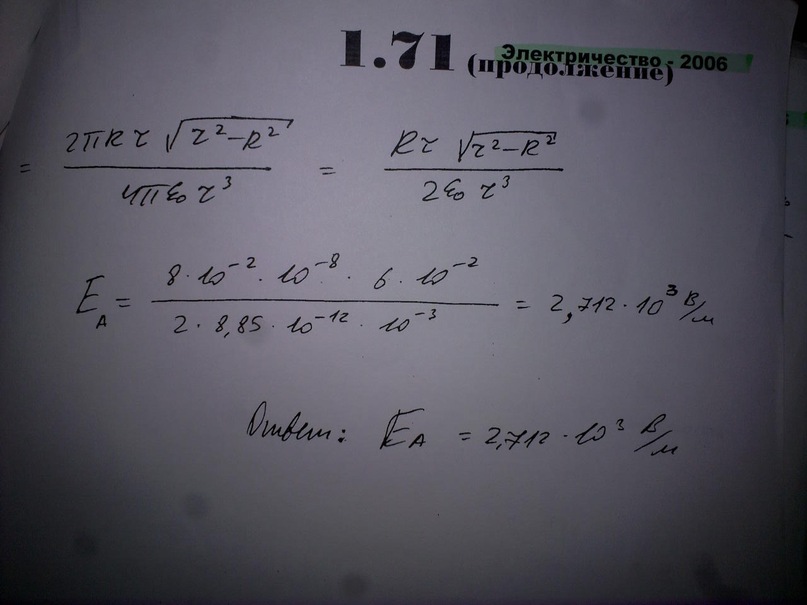 1.71 (продолжение)
Электричество - 2006
= 2πRτ √(r²-R²) / 4πε₀ r³ = Rτ √(r²-R²) / 2ε₀ r³
E_A = 8·10⁻²·10⁻⁸·6·10⁻² / 2·8,85·10⁻¹²·10⁻³ = 2,712·10³ В/м
Ответ: E_A = 2,712·10³ В/м